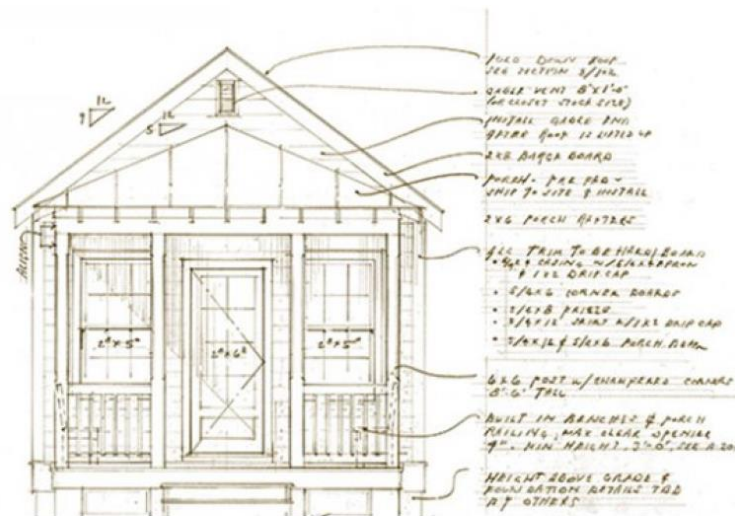 FOLD DOWN ROOF
SEE SECTION 3/202
GABLE VENT 8"X1'-4"
(OR CLOSEST STOCK SIZE)
INSTALL GABLE END
AFTER ROOF IS LIFTED UP
12
9
12
5
2X8 BARGE BOARD
PORCH - PRE FAB -
SHIP TO SITE & INSTALL
2X6 PORCH RAFTERS
ALIGN
ALL TRIM TO BE HARDIBOARD
CASING W/ 5/4X6 APRON
& 1X2 DRIP CAP
• 5/4X6 CORNER BOARDS
• 5/4X8 FRIEZE
• 5/4X12 SKIRT W/ 1X2 DRIP CAP
• 5/4X12 & 5/4X6 PORCH BEAM
2⁸ X 5⁰
2⁸ X 6⁸
2⁸ X 5⁰
6X6 POST W/ CHAMFERED CORNERS
8'-6" TALL
BUILT IN BENCHES & PORCH
RAILING, MAX CLEAR OPENING
4" - MIN HEIGHT 3'-0", SEE
HEIGHT ABOVE GRADE &
FOUNDATION DETAILS TBD
BY OTHERS